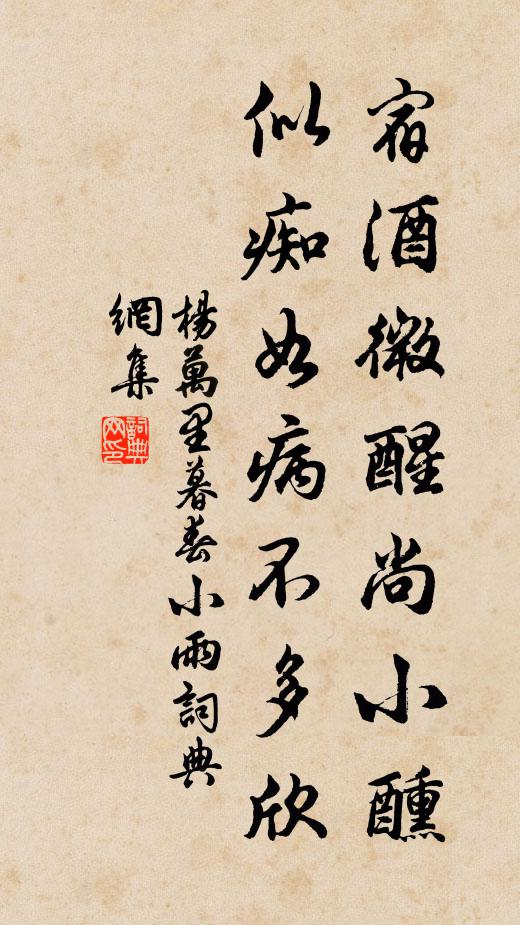 宿酒微醒尚小醺
似痴如病不多欣
楊萬里暮春小雨詞典
網集
詞典網印